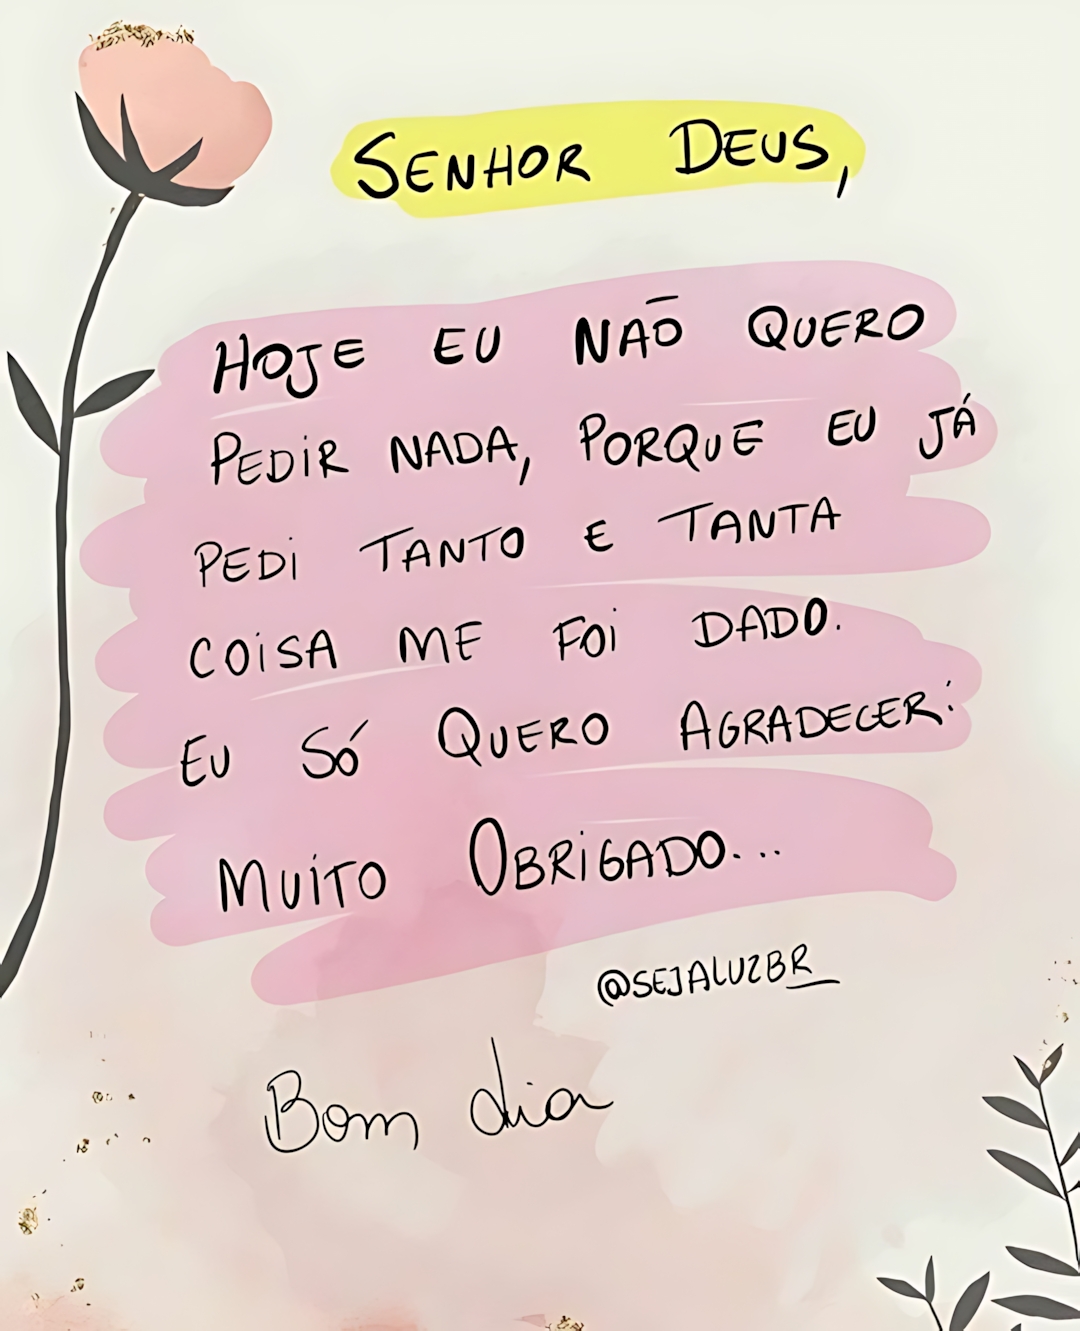 SENHOR DEUS,
HOJE EU NÃO QUERO
PEDIR NADA, PORQUE EU JÁ
PEDI TANTO E TANTA
COISA ME FOI DADO.
EU SÓ QUERO AGRADECER:
MUITO OBRIGADO...
@SEJALUZBR_
Bom dia